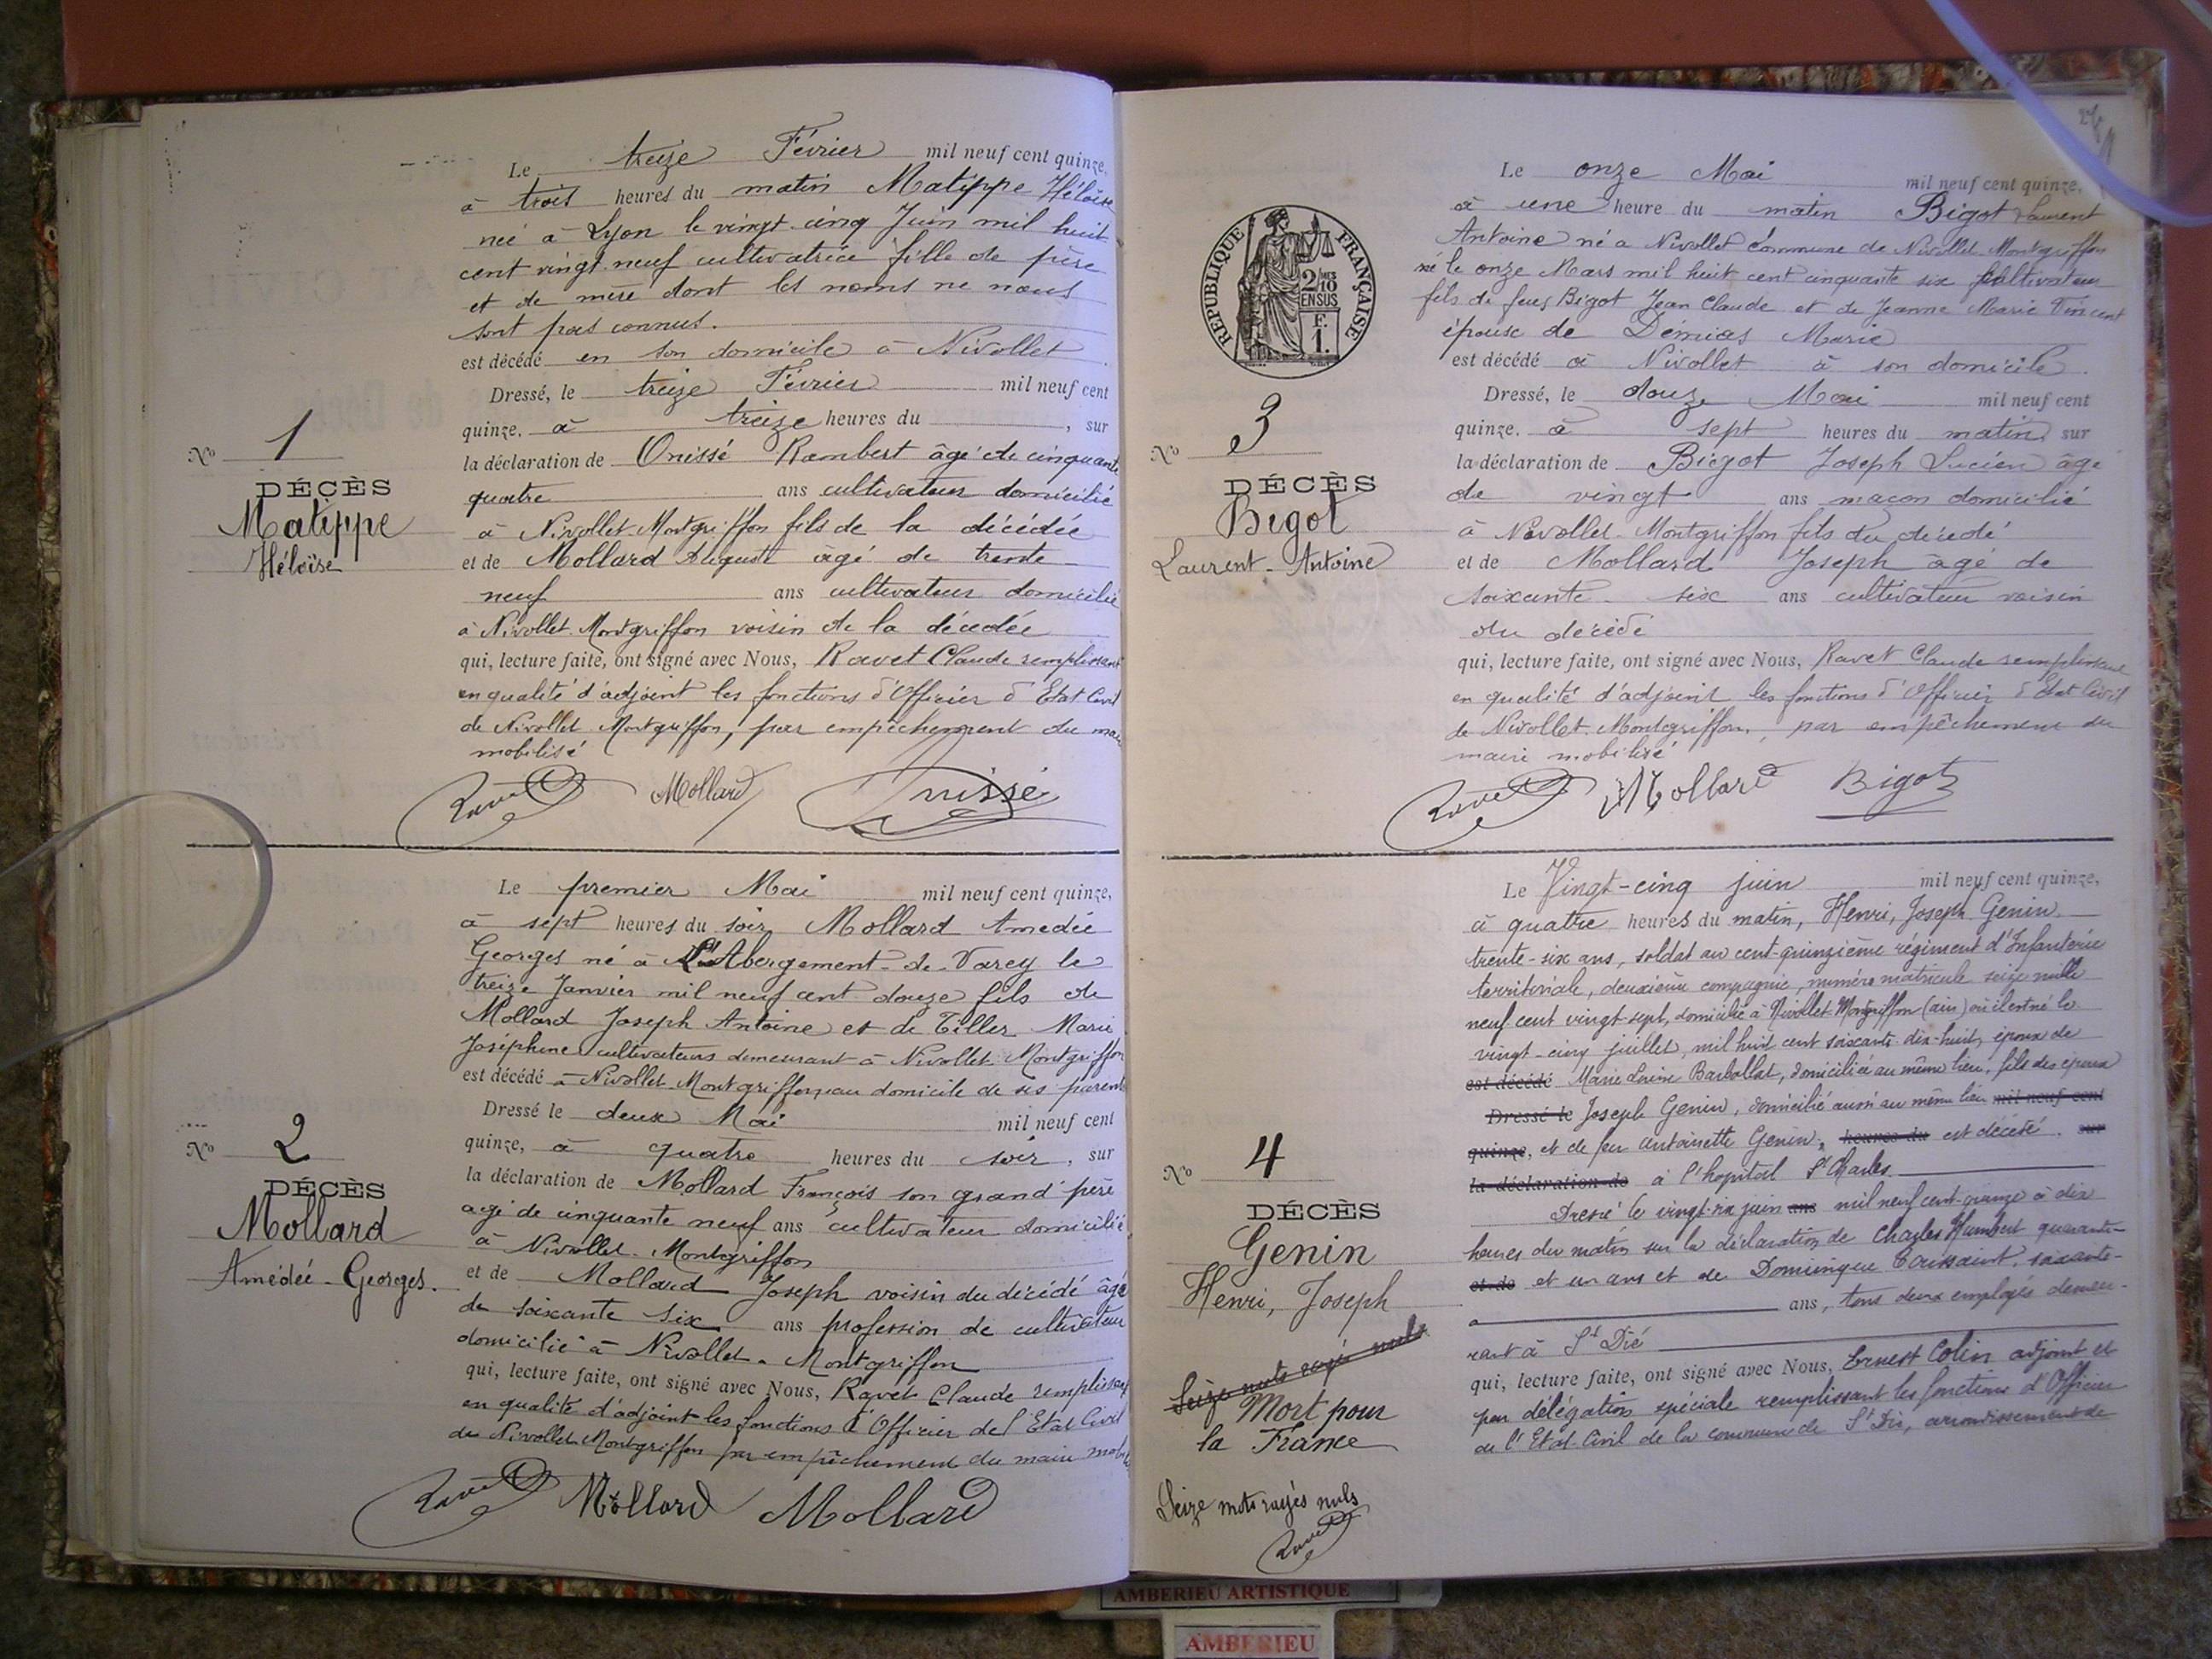 Le treize Février mil neuf cent quinze,
à trois heures du matin Matippe Héloïse
née à Lyon le vingt cinq Juin mil huit
cent vingt neuf cultivatrice fille de père
et de mère dont les noms ne nous
sont pas connus.
est décédé en son domicile à Nivollet
Dressé, le treize Février mil neuf cent
quinze, à treize heures du , sur
la déclaration de Onissé Rambert âgé de cinquante
quatre ans cultivateur domicilié
à Nivollet-Montgriffon fils de la décédée
et de Mollard Auguste âgé de trente
neuf ans cultivateur domicilié
à Nivollet-Montgriffon voisin de la décédée
qui, lecture faite, ont signé avec Nous, Ravet Claude remplissant
en qualité d'adjoint les fonctions d'Officier d'Etat Civil
de Nivollet Montgriffon, par empêchement du maire
mobilisé
Ravet Mollard Onissé
No 1
DÉCÈS
Matippe
Héloïse
Le premier Mai mil neuf cent quinze,
à sept heures du soir Mollard Amedée
Georges né à L'Abergement-de-Varey le
treize Janvier mil neuf cent douze fils de
Mollard Joseph Antoine et de Tiller Marie
Joséphine cultivateurs demeurant à Nivollet-Montgriffon
est décédé à Nivollet-Montgriffon, au domicile de ses parents
Dressé le deux Mai mil neuf cent
quinze, à quatre heures du soir, sur
la déclaration de Mollard François son grand'père
agé de cinquante neuf ans cultivateur domicilié
à Nivollet-Montgriffon
et de Mollard Joseph voisin du décédé âgé
de soixante six ans profession de cultivateur
domicilié à Nivollet-Montgriffon
qui, lecture faite, ont signé avec Nous, Ravet Claude remplissant
en qualité d'adjoint les fonctions d'Officier de l'Etat Civil
de Nivollet-Montgriffon par empêchement du maire mobilisé
Ravet Mollard Mollard
No 2
DÉCÈS
Mollard
Amédée-Georges.
RÉPUBLIQUE FRANÇAISE
2/10 MES
EN SUS
F.
1.
Le onze Mai mil neuf cent quinze,
à une heure du matin Bigot Laurent
Antoine né a Nivollet commune de Nivollet-Montgriffon
né le onze Mars mil huit cent cinquante six cultivateur
fils de feus Bigot Jean Claude et de Jeanne Marie Vincent
épouse de Demias Marie
est décédé à Nivollet à son domicile
Dressé, le douze Mai mil neuf cent
quinze, à sept heures du matin, sur
la déclaration de Bigot Joseph Lucien âgé
de vingt ans maçon domicilié
à Nivollet-Montgriffon fils du décédé
et de Mollard Joseph âgé de
soixante-six ans cultivateur voisin
du décédé
qui, lecture faite, ont signé avec Nous, Ravet Claude remplissant
en qualité d'adjoint les fonctions d'Officier d'Etat Civil
de Nivollet-Montgriffon, par empêchement du
maire mobilisé
Ravet Mollard Bigot
No 3
DÉCÈS
Bigot
Laurent-Antoine
Le Vingt-cinq juin mil neuf cent quinze,
à quatre heures du matin, Henri, Joseph Genin
trente-six ans, soldat au cent-quinzième régiment d'Infanterie
territoriale, deuxième compagnie, numéro matricule seize mille
neuf cent vingt sept, domicilié à Nivollet Montgriffon (ain) où il est né le
vingt-cinq juillet, mil huit cent soixante-dix-huit, époux de
est décédé Marie Barbollat, domiciliée au même lieu, fils des époux
Dressé le Joseph Genin, domicilié aussi au même lieu mil neuf cent
quinze, et de feu Antoinette Genin, heures du est décédé. sur
la déclaration de à l'hopital St Charles
Dressé le vingt-six juin ans mil neuf cent-quinze à dix
heures du matin sur la déclaration de Charles Humbert quarante-
et de et un ans et de Dominique Toussaint, soixante-
ans, tous deux employés demeu-
rant à St Dié
qui, lecture faite, ont signé avec Nous, Ernest Colin adjoint et
par délégation spéciale remplissant les fonctions d'Officier
de l'Etat-Civil de la commune de St Dié, arrondissement de
No 4
DÉCÈS
Genin
Henri, Joseph
Seize mots rayés nuls
Mort pour
la France
Seize mots rayés nuls
Ravet
AMBERIEU ARTISTIQUE
AMBERIEU